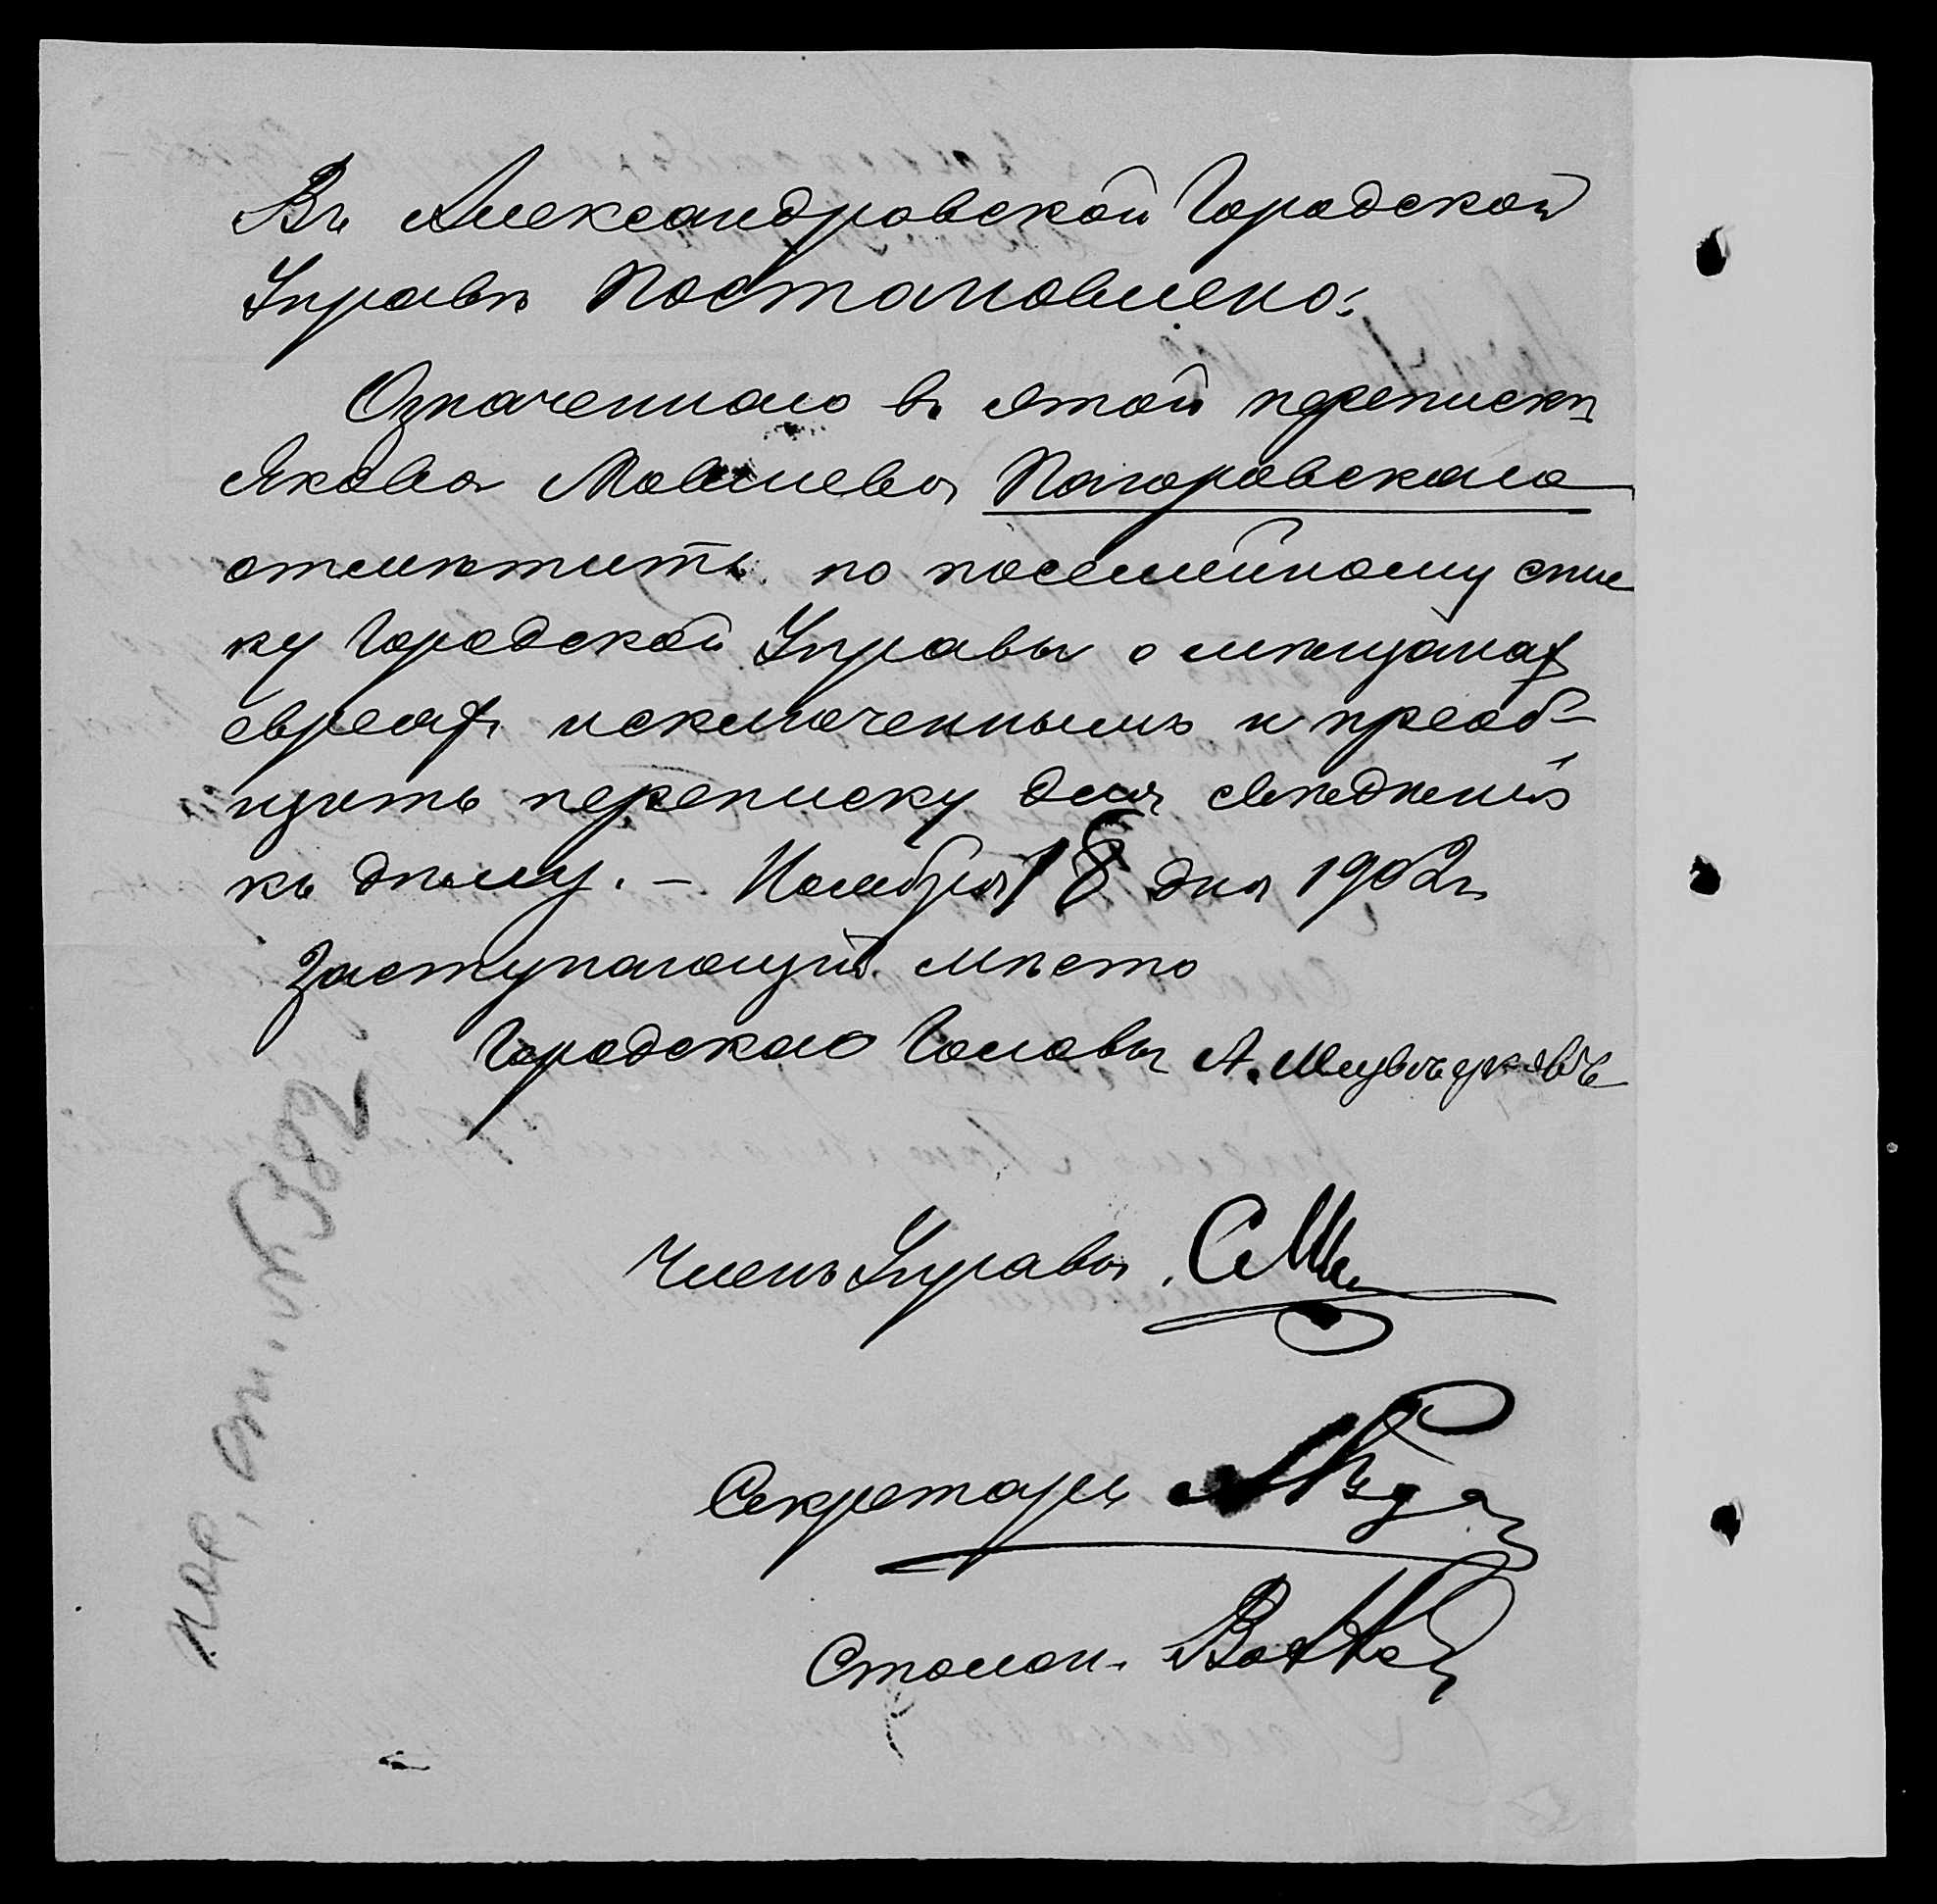 Въ Александровской Городской
Управѣ Постановлено:
Означеннаго въ этой перепискѣ
Якова Мовшева Погоровскаго
отмѣтить по посемейному спис
ку Городской Управы о мѣщанах
евреях исключеннымъ и преоб-
щить переписку для свѣдѣнія
къ дѣлу. – Ноября 18 дня 1902 г.
Заступающій мѣсто
Городскаго Головы А.
Членъ Управы
Секретарь
Столон.
по, оп. № 382